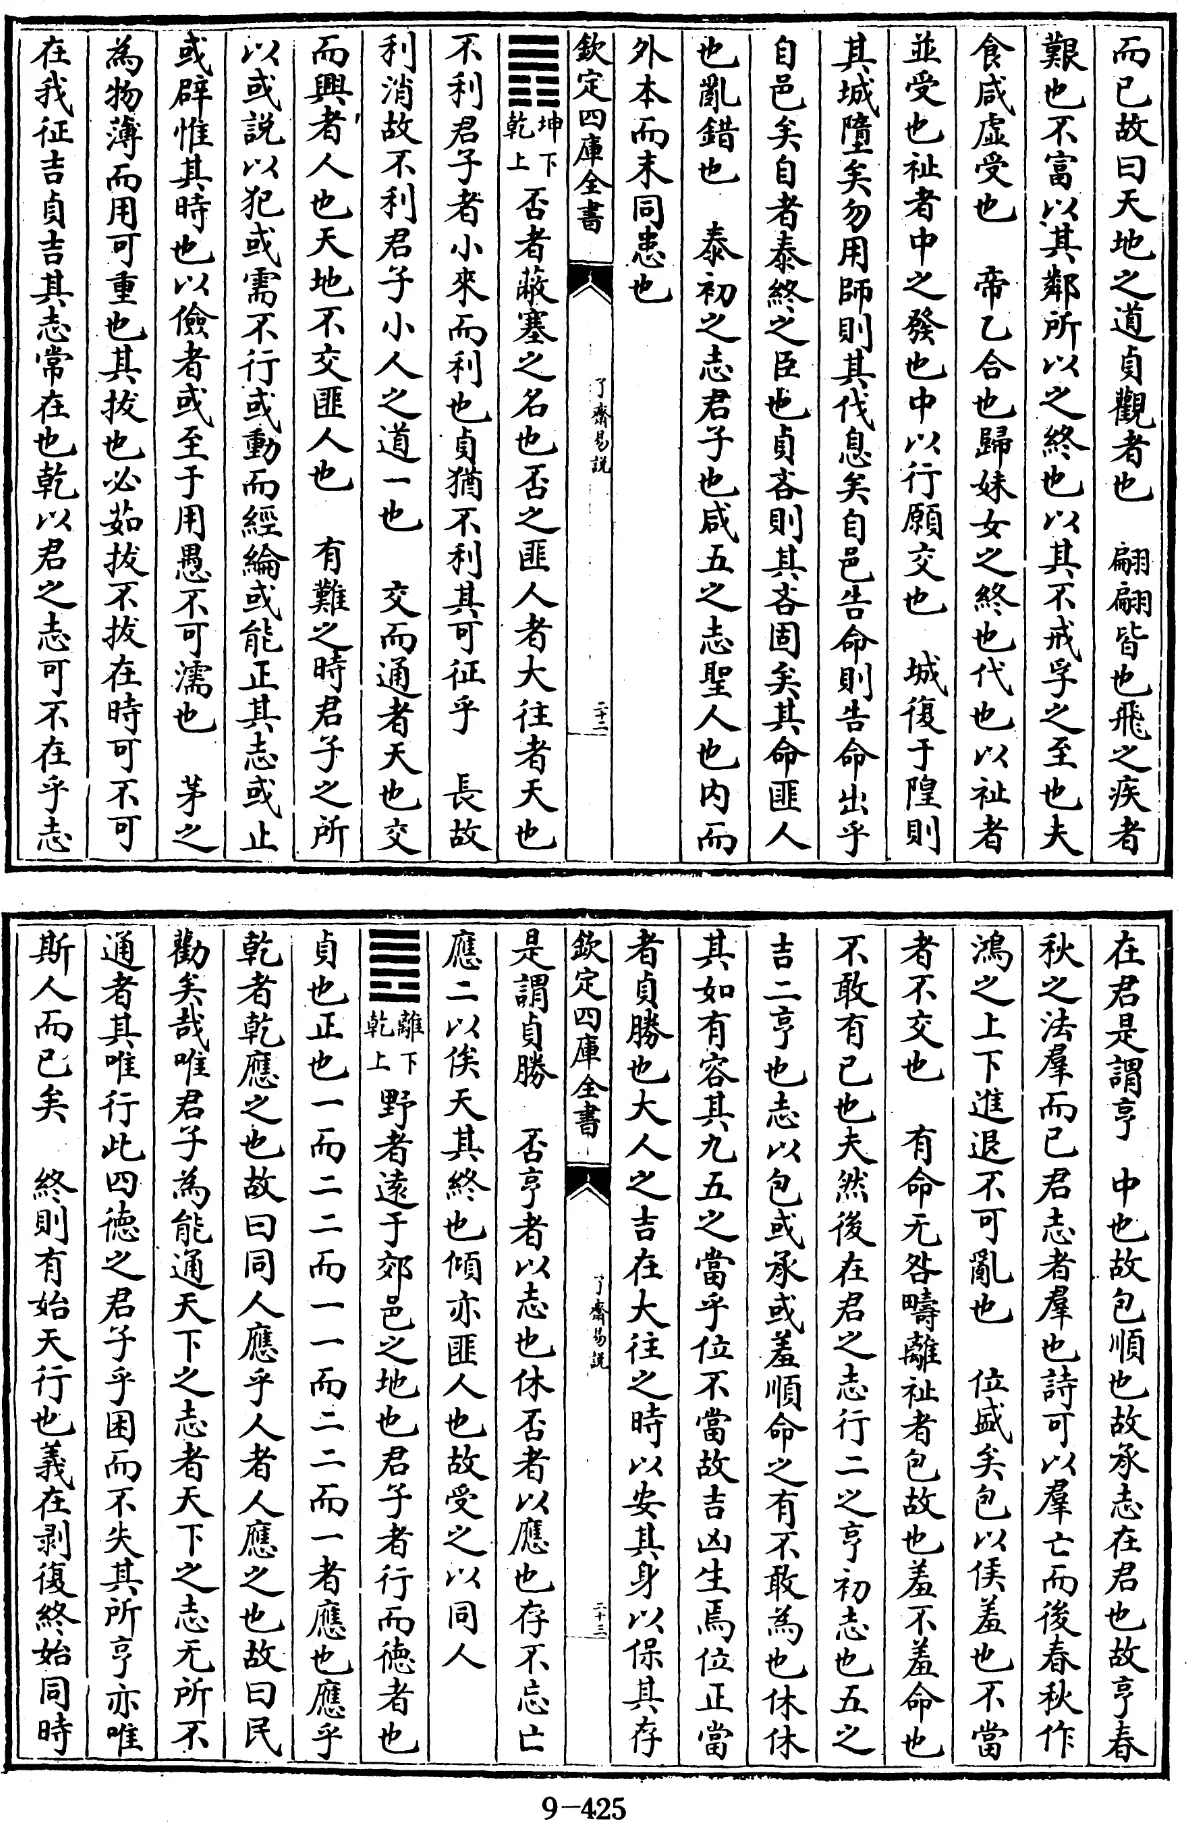 而已故曰天地之道貞觀者也　翩翩皆也飛之疾者
艱也不富以其鄰所以之終也以其不戒孚之至也夫
食咸虛受也　帝乙合也歸妹女之終也代也以祉者
並受也祉者中之發也中以行願交也　城復于隍則
其城墮矣勿用師則其伐息矣自邑告命則告命出乎
自邑矣自者泰終之臣也貞吝則其吝固矣其命匪人
也亂錯也　泰初之志君子也咸五之志聖人也内而
外本而末同患也
欽定四庫全書　了齋易說　二十二
䷋坤下乾上　否者蔽塞之名也否之匪人者大往者天也
不利君子者小來而利也貞猶不利其可征乎　長故
利消故不利君子小人之道一也　交而通者天也交
而興者人也天地不交匪人也　有難之時君子之所
以或說以犯或需不行或動而經綸或能正其志或止
或辟惟其時也以儉者或至于用愚不可濡也　茅之
為物薄而用可重也其拔也必茹拔不拔在時可不可
在我征吉貞吉其志常在也乾以君之志可不在乎志
在君是謂亨　中也故包順也故承志在君也故亨春
秋之法羣而已君志者羣也詩可以羣亡而後春秋作
鴻之上下進退不可亂也　位盛矣包以俟羞也不當
者不交也　有命无咎疇離祉者包故也羞不羞命也
不敢有已也夫然後在君之志行二之亨初志也五之
吉二亨也志以包或承或羞順命之有不敢為也休休
其如有容其九五之當乎位不當故吉凶生焉位正當
者貞勝也大人之吉在大往之時以安其身以保其存
欽定四庫全書　了齋易說　二十三
是謂貞勝　否亨者以志也休否者以應也存不忘亡
應二以俟天其終也傾亦匪人也故受之以同人
䷌離下乾上　野者遠于郊邑之地也君子者行而德者也
貞也正也一而二二而一一而二二而一者應也應乎
乾者乾應之也故曰同人應乎人者人應之也故曰民
勸矣哉唯君子為能通天下之志者天下之志无所不
通者其唯行此四德之君子乎困而不失其所亨亦唯
斯人而已矣　終則有始天行也義在剥復終始同時
9-425